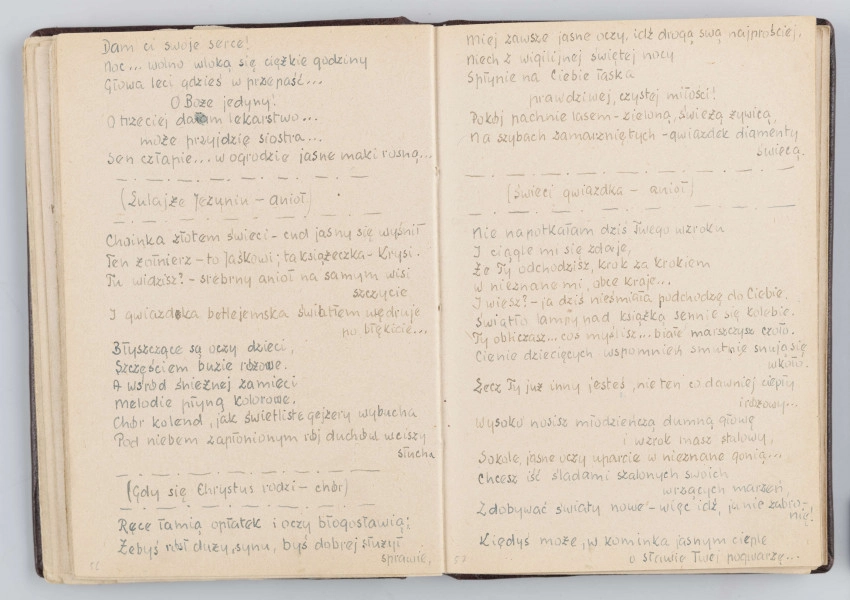 Dam ci swoje serce!
Noc... wolno wloką się ciężkie godziny
Głowa leci gdzieś w przepaść...
O Boże jedyny!
O trzeciej dałam lekarstwo...
może przyjdzie siostra...
Sen człapie... w ogrodzie jasne maki rosną...
(Lulajże Jezuniu - anioł)
Choinka złotem świeci - cud jasny się wyśnił
Ten żołnierz - to Jaśkowi; ta książeczka - Krysi.
Tu widzisz? - srebrny anioł na samym wisi
szczycie
I gwiazdka betlejemska światłem wędruje
po błękicie...
Błyszczące są oczy dzieci,
Szczęściem buzie różowe.
A wśród śnieżnej zamieci
Melodie płyną kolorowe.
Chór kolend, jak świetliste gejzery wybucha
Pod niebem zapłonionym rój duchów weiszy
słucha
(Gdy się Chrystus rodzi - chór)
Ręce łamią opłatek i oczy błogosławią;
Żebyś rósł duży, synu, byś dobrej służył
sprawie,
Miej zawsze jasne oczy, idź drogą swą najprościej,
Niech z wigilijnej świętej nocy
Spłynie na Ciebie łaska
prawdziwej, czystej miłości!
Pokój pachnie lasem - zieloną, świeżą żywicą,
Na szybach zamarzniętych - gwiazdek diamenty
świecą.
(Świeci gwiazdka - anioł)
Nie napotkałam dziś Twego wzroku
I ciągle mi się zdaje,
Że Ty odchodzisz, krok za krokiem
w nieznane mi, obce kraje...
I wiesz? - ja dziś nieśmiała podchodzę do Ciebie.
Światło lampy nad książką sennie się kolebie.
Ty obliczasz... coś myślisz... białe marszczysz czoło.
Cienie dziecięcych wspomnień smutnie snują się
wkoło.
Lecz Ty już inny jesteś, nie ten co dawniej ciepły
i różowy...
Wysoko nosisz młodzieńczą dumną głowę
i wzrok masz stalowy,
Sokole, jasne oczy uparcie w nieznane gonią...
Chcesz iść śladami szalonych swoich
wrzących marzeń,
Zdobywać światy nowe - więc idź, ja nie zabro-
nię!
Kiedyś może, w kominka jasnym cieple
o sławie Twej pogwarzę...
57